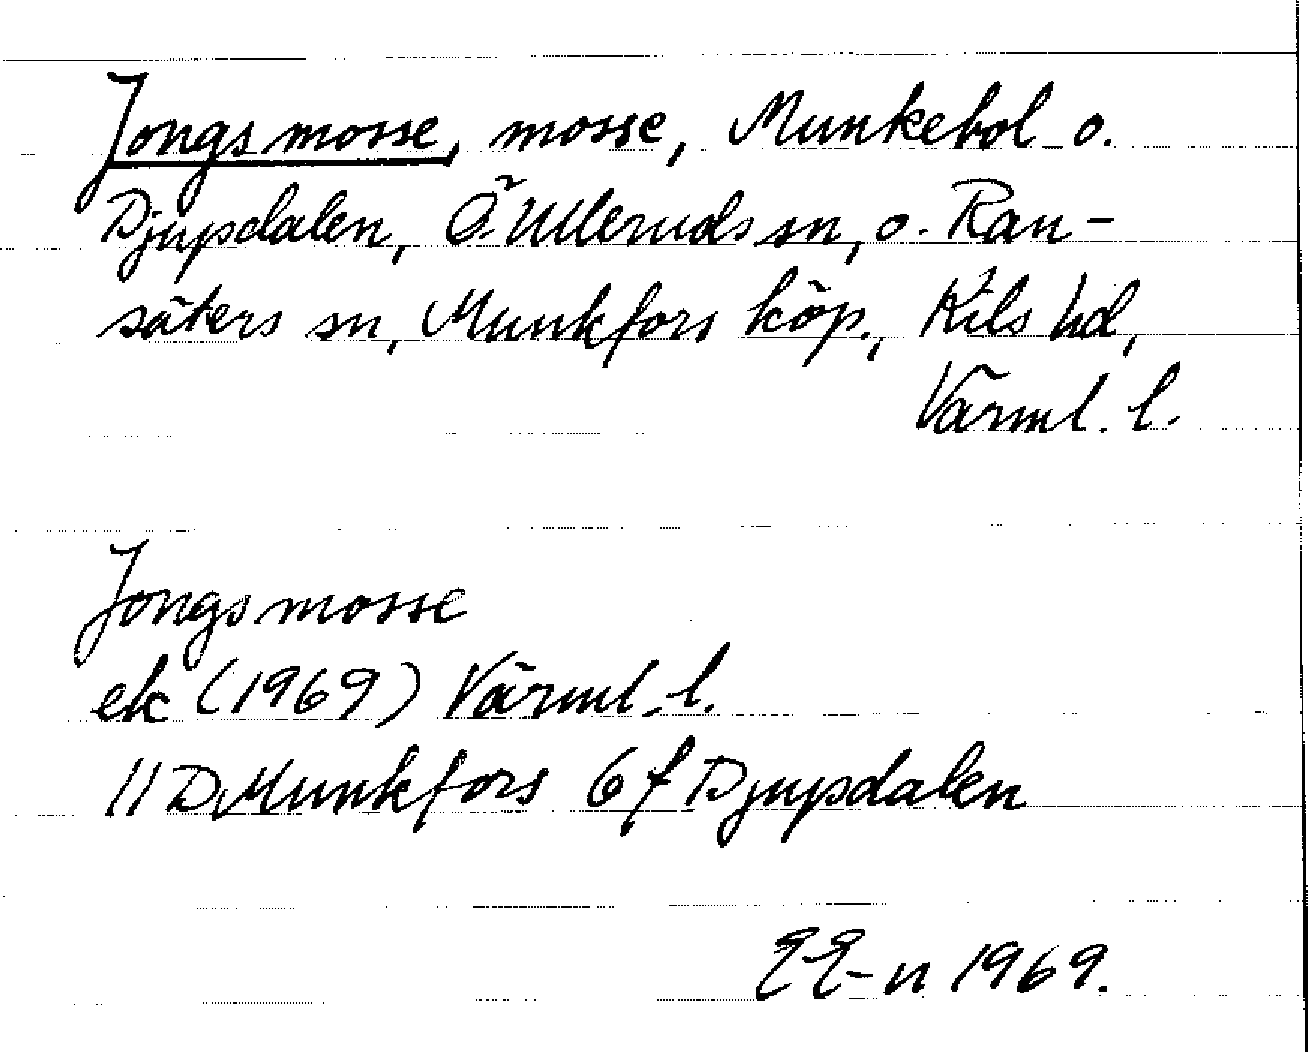 Jongsmosse, mosse, Munkebol o.
Djupdalen, Ö. Ulleruds sn, o. Ran-
säters sn, Munkfors köp., Kils hd,
Värml. l.
Jongsmosse
ek (1969) Värml. l.
11D Munkfors 6 f Djupdalen
1969.